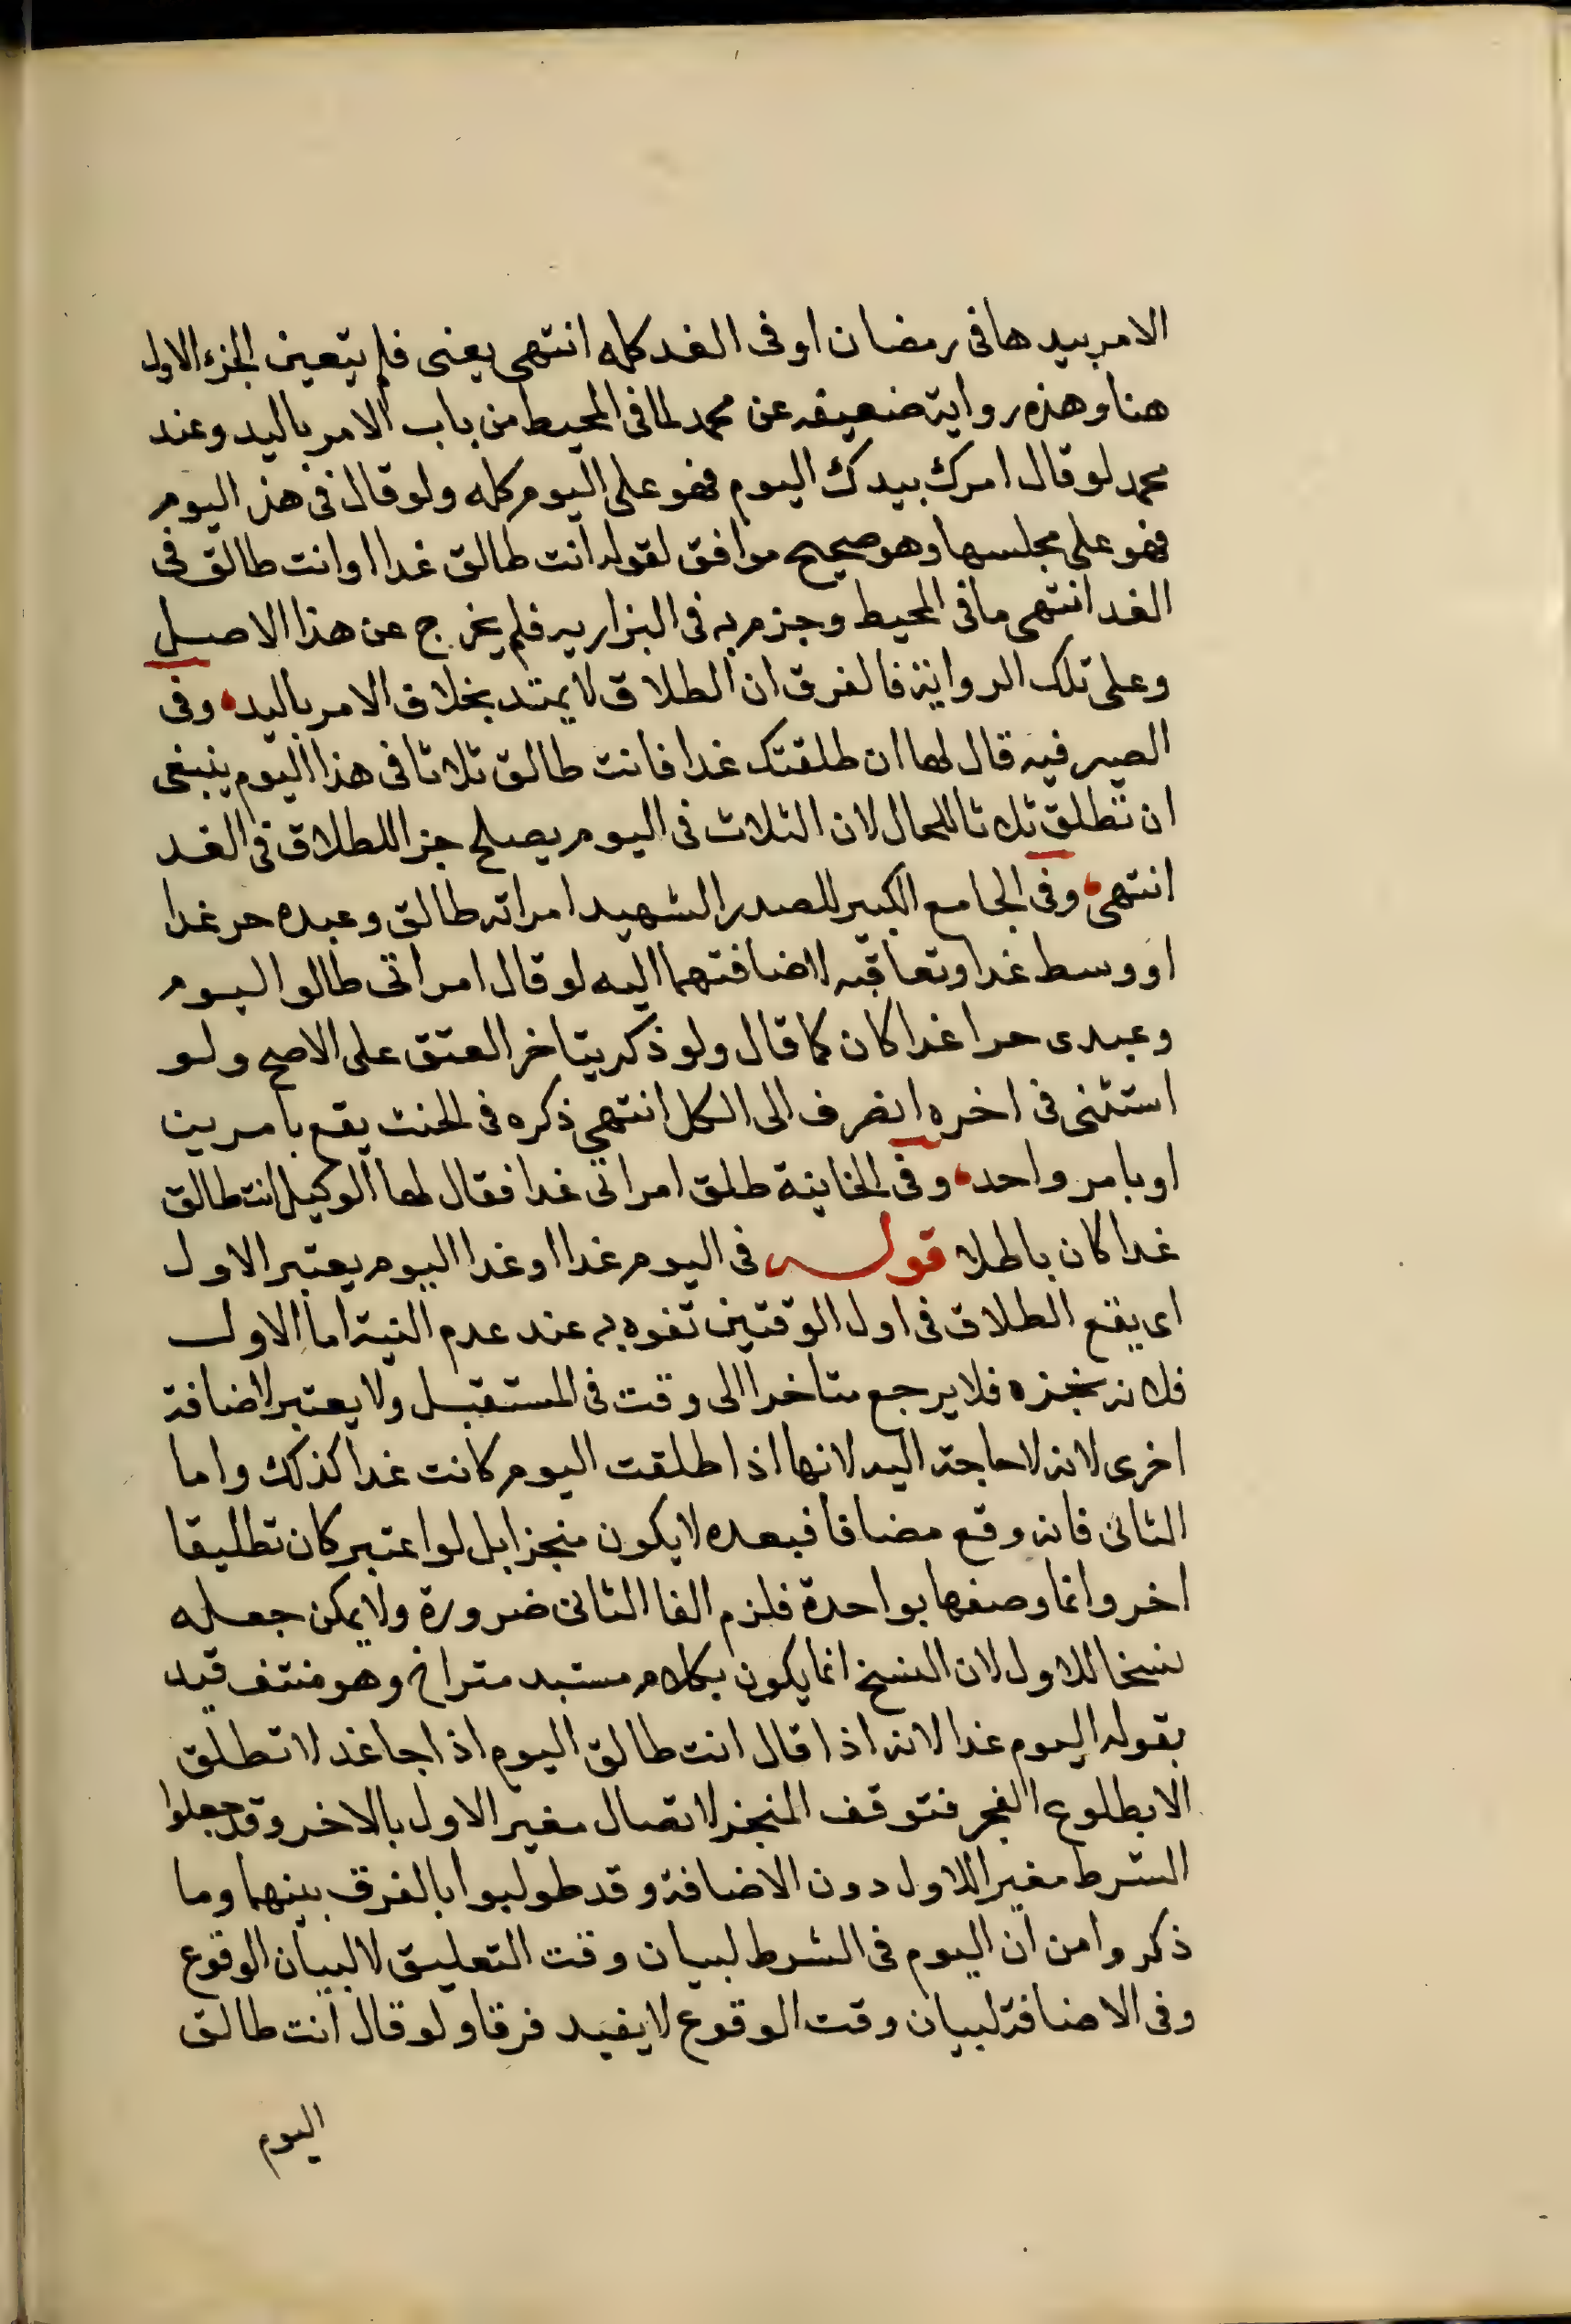 الامر بيدها فى رمضان او فى الغد كله انتهى يعنى فلم يتعين الجزء الاول
هنا وهذه رواية ضعيفه عن محمد لما فى المحيط من باب الامر باليد وعند
محمد لو قال امرك بيدك اليوم فهو على اليوم كله ولو قال فى هذا اليوم
فهو على مجلسها وهو صحيح موافق لقوله انت طالق غدا او انت طالق فى
الغد انتهى ما فى المحيط وجزم به فى البزازيه فلم يخرج عن هذا الاصل
وعلى تلك الرواية فالفرق ان الطلاق لا يمتد بخلاف الامر باليد، وفى
الصيرفيه قال لها ان طلقتك غدا فانت طالق ثلاثا فى هذا اليوم ينبغى
ان تطلق ثلاثا للحال لان الثلاث فى اليوم يصلح جزا للطلاق فى الغد
انتهى، وفى الجامع الكبير للصدر الشهيد امراته طالق وعبده حر غدا
او وسط غدا وتعاقبه لاضافتهما اليه لو قال امراتى طالق اليوم
وعبدى حرا غدا كان كما قال ولو ذكر يتاخر العتق على الاصح ولو
استثنى فى اخره انصرف الى الكل انتهى ذكره فى الحنث يقع بامرين
او بامر واحد، وفى الخانية طلق امراتى غدا فقال لها الوكيل انت طالق
غدا كان باطلا قوله فى اليوم غدا او غدا اليوم يعتبر الاول
اى يقع الطلاق فى اول الوقتين تفوه به عند عدم النية اما الاول
فلانه نجزه فلا يرجع متاخرا الى وقت فى المستقبل ولا يعتبر لاضافة
اخرى لانه لا حاجة اليه لانها اذا طلقت اليوم كانت غدا كذلك واما
الثانى فانه وقع مضافا فبعده لا يكون منجزا بل لو اعتبر كان تطليقا
اخر وانما وصفها بواحدة فلزم الغا الثانى ضرورة ولا يمكن جعله
نسخا للاول لان النسخ انما يكون بكلام مستبد متراخ وهو منتف قيد
بقوله اليوم غدا لانه اذا قال انت طالق اليوم اذا جا غد لا تطلق
الا بطلوع الفجر فتوقف المنجز لاتصال مغير الاول بالاخر وقد جعلوا
الشرط مغيرا للاول دون الاضافة وقد طولبوا بالفرق بينهما وما
ذكروا من ان اليوم فى الشرط لبيان وقت التعليق لا لبيان الوقوع
وفى الاضافة لبيان وقت الوقوع لا يفيد فرقا ولو قال انت طالق
اليوم